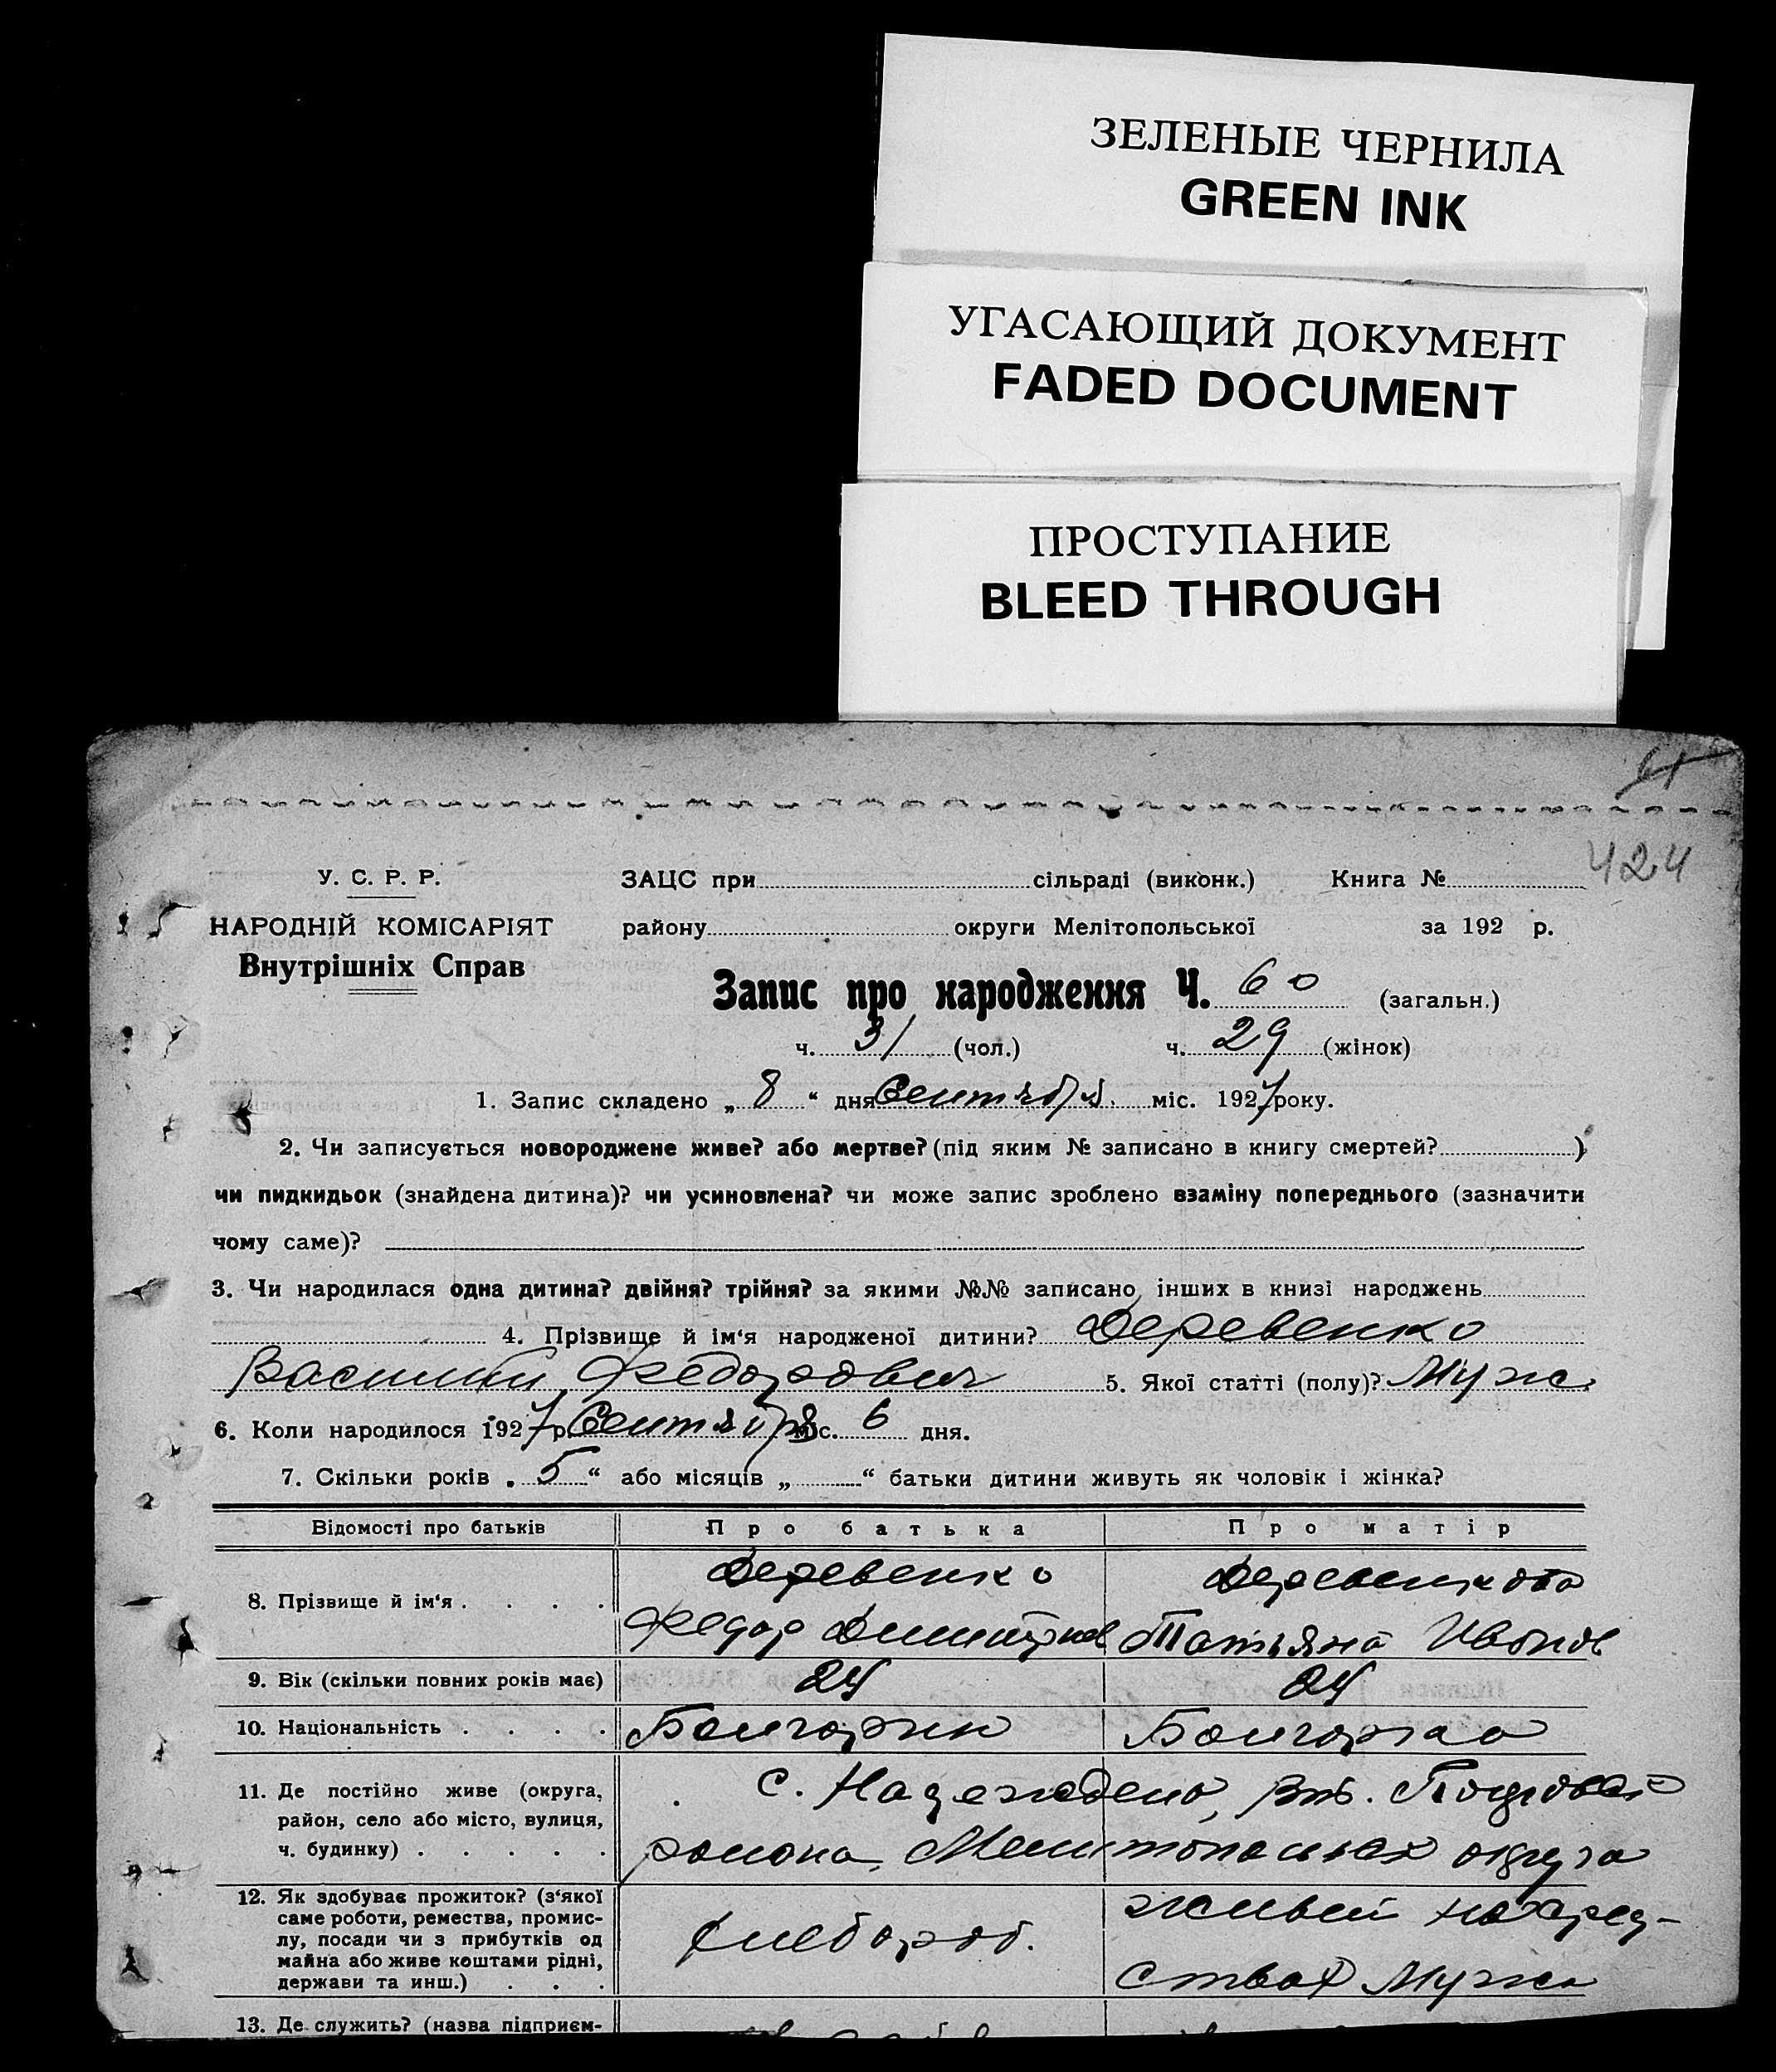 ЗЕЛЕНЫЕ ЧЕРНИЛА
GREEN INK
УГАСАЮЩИЙ ДОКУМЕНТ
FADED DOCUMENT
ПРОСТУПАНИЕ
BLEED THROUGH
424
У. С. Р. Р. ЗАЦС при сільраді (виконк.) Книга №
НАРОДНІЙ КОМІСАРІЯТ району округи Мелітопольської за 192 р.
Внутрішніх Справ
Запис про народження Ч. 60 (загальн.)
ч. 31 (чол.) ч. 29 (жінок)
1. Запис складено „ 8 “ дня Сентября міс. 1927 року.
2. Чи записується новороджене живе? або мертве? (під яким № записано в книгу смертей? )
чи пидкидьок (знайдена дитина)? чи усиновлена? чи може запис зроблено взаміну попереднього (зазначити
чому саме)?
3. Чи народилася одна дитина? двійня? трійня? за якими №№ записано інших в книзі народжень
4. Прізвище й ім‘я народженої дитини? Деревенко
Василий Федорович 5. Якої статті (полу)? Муж.
6. Коли народилося 1927 р. Сентября міс. 6 дня.
7. Скільки років „ 5 “ або місяців „ “ батьки дитини живуть як чоловік і жінка?
Відомості про батьків Про батька Про матір
8. Прізвище й ім‘я . . . . Деревенко Деревенкова
Федор Дмитриев Татьяна Иванов
9. Вік (скільки повних років має) 24 24
10. Національність . . . . Болгарин Болгарка
11. Де постійно живе (округа, район, село або місто, вулиця, ч. будинку) . . . . .
с.
района, Мелитопольск округа
12. Як здобуває прожиток? (з‘якої саме роботи, ремества, промислу, посади чи з прибутків од майна або живе коштами рідні, держави та инш.) . . .
хлебороб. на сред-
ствах Мужа
13. Де служить? (назва підприєм-